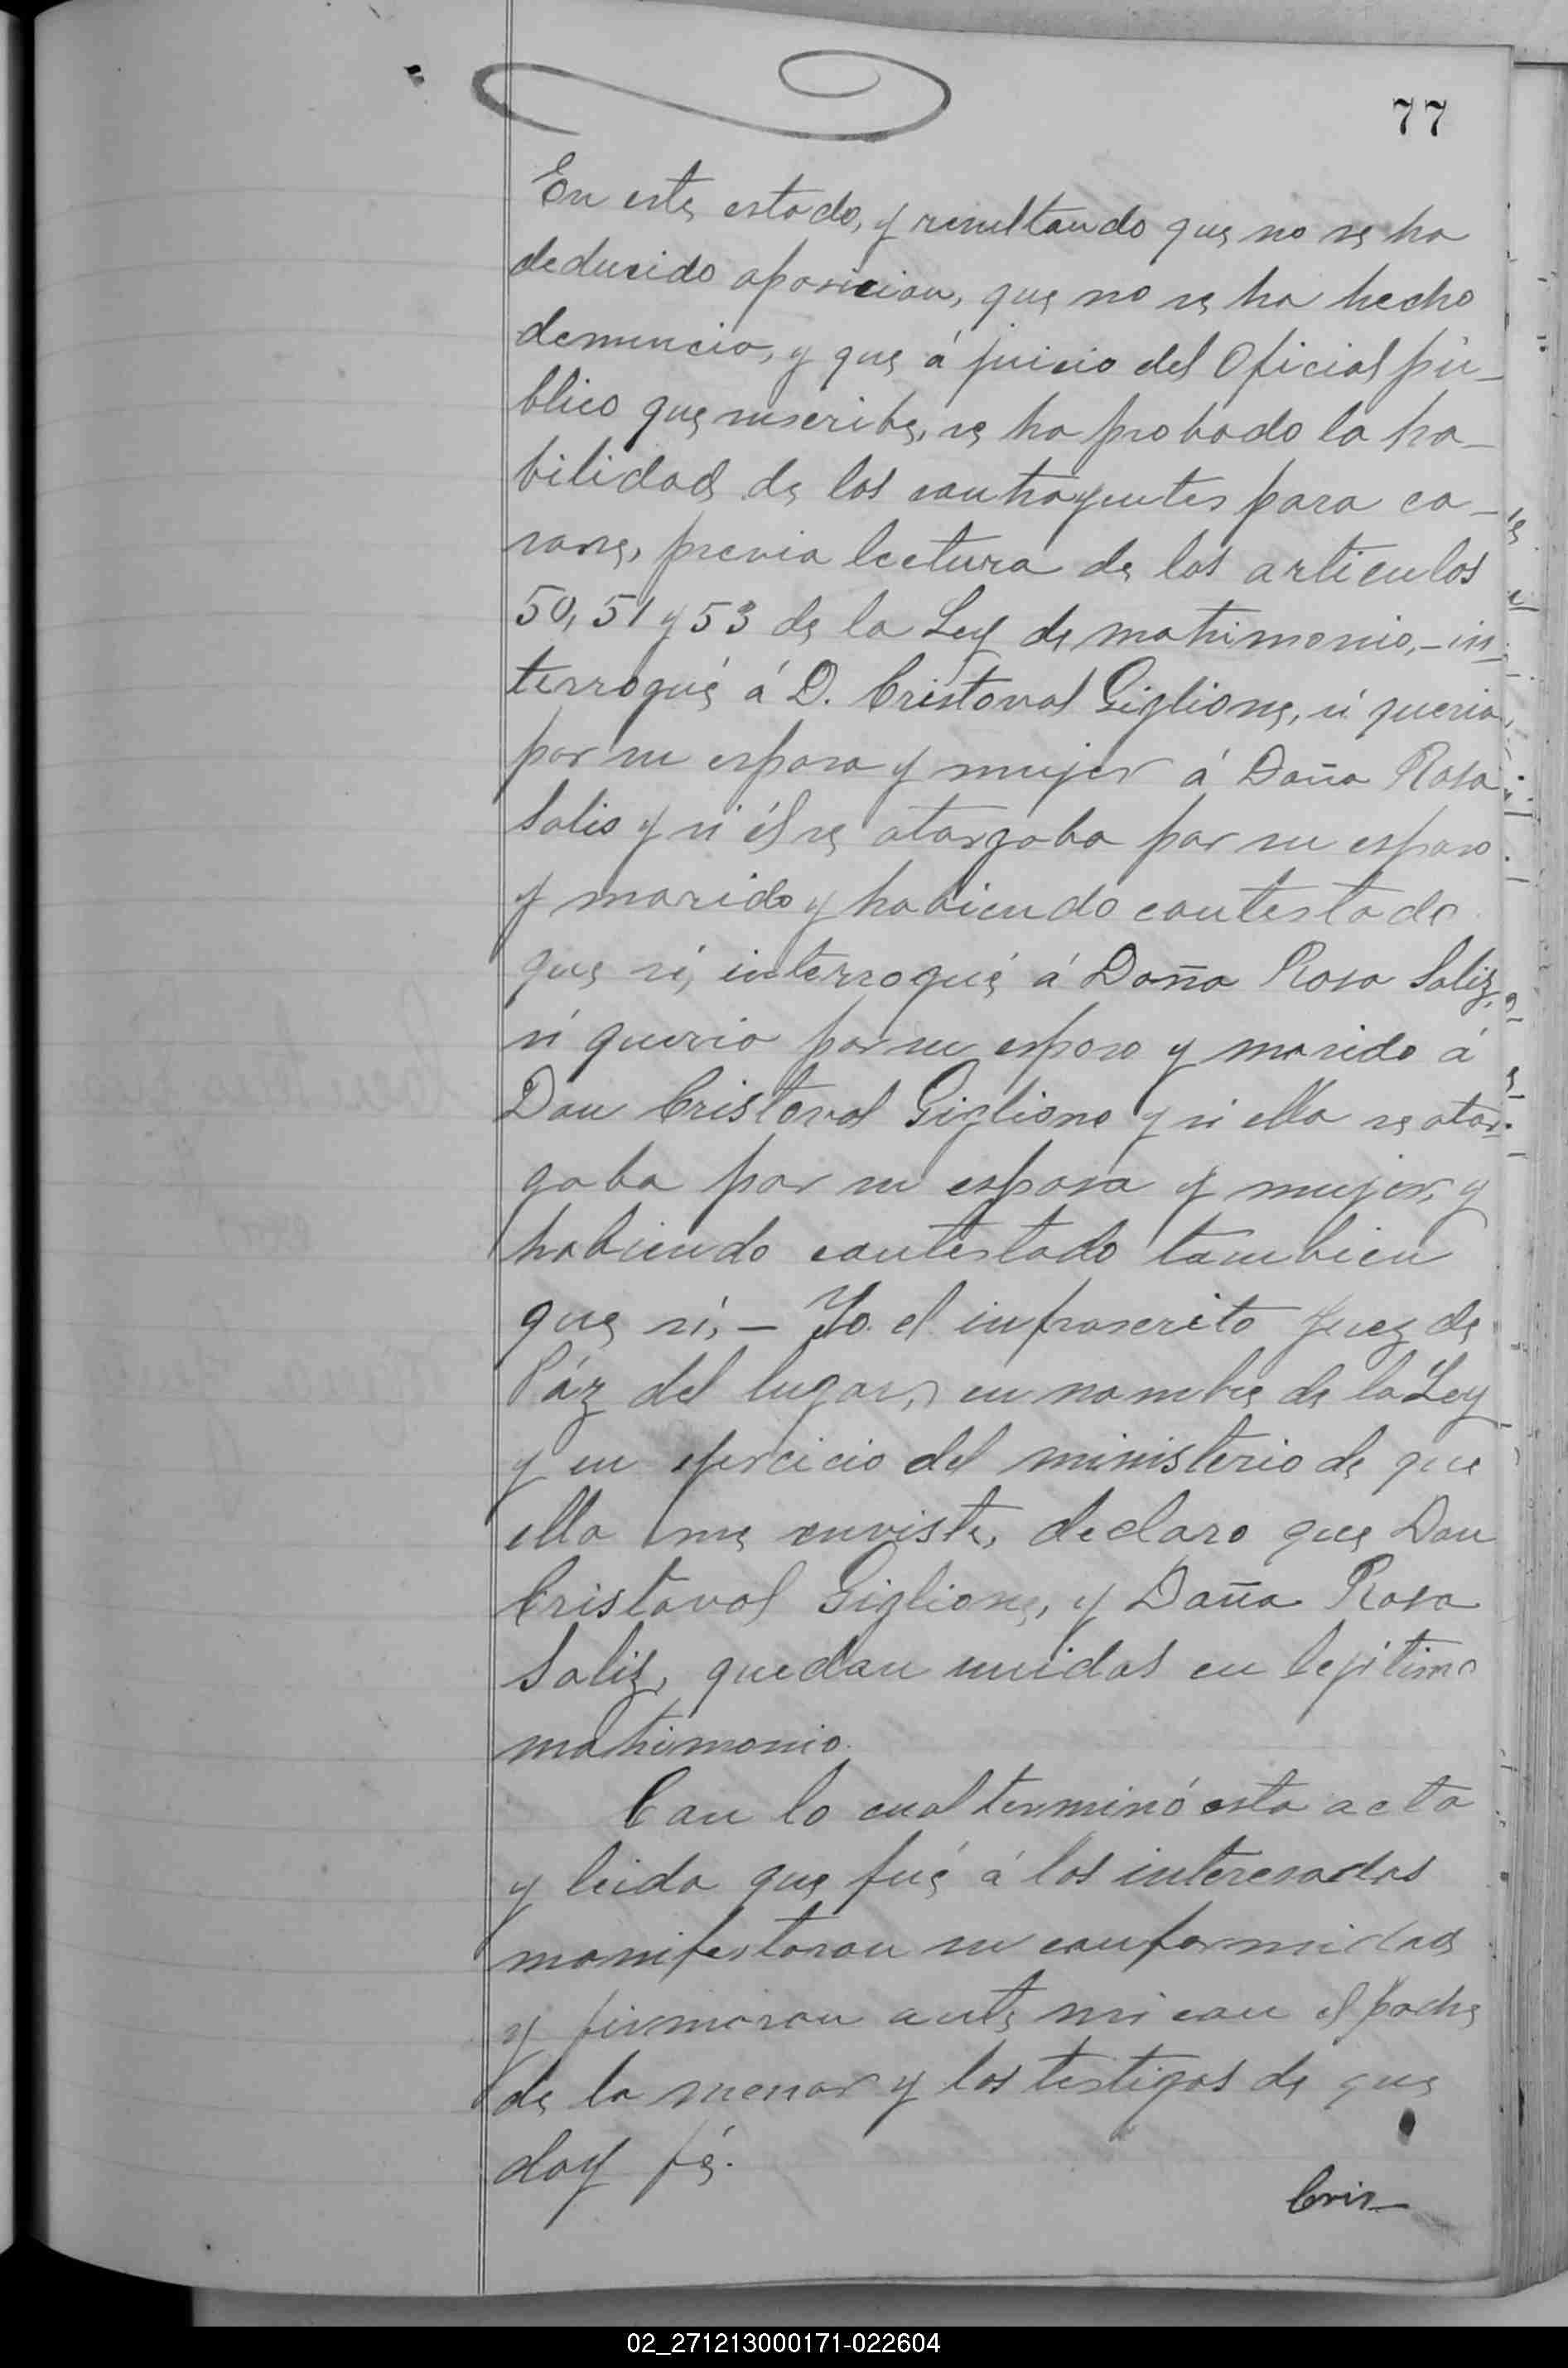 77
En este estado, y resultando que no se ha
deducido oposicion, que no se ha hecho
denuncia, y que á juicio del Oficial pú-
blico que suscribe, se ha probado la ha-
bilidad de los contrayentes para ca-
sarse, previa lectura de los articulos
50, 51 y 53 de la Ley de matrimonio,- in-
terrogué á D. Cristoval Giglione, si queria
por su esposa y mujer á Doña Rosa
Salis y si él se otorgaba por su esposo
y marido y habiendo contestado
que si, interrogué á Doña Rosa Saliz,
si queria por su esposo y marido á
Don Cristoval Giglione y si ella se otor-
gaba por su esposa y mujer, y
habiendo contestado tambien
que si, - Yo el infrascrito Juez de
Páz del lugar, en nombre de la Ley
y en ejercicio del ministerio de que
ella me enviste, declaro que Don
Cristoval Giglione, y Doña Rosa
Saliz, quedan unidos en lejitimo
matrimonio.
Con lo cual terminó esta acta
y leida que fué á los interesados
manifestaron su conformidad
y firmaron ante mi con el padre
de la menor y los testigos de que
doy fé.
Cris-
02_271213000171-022604